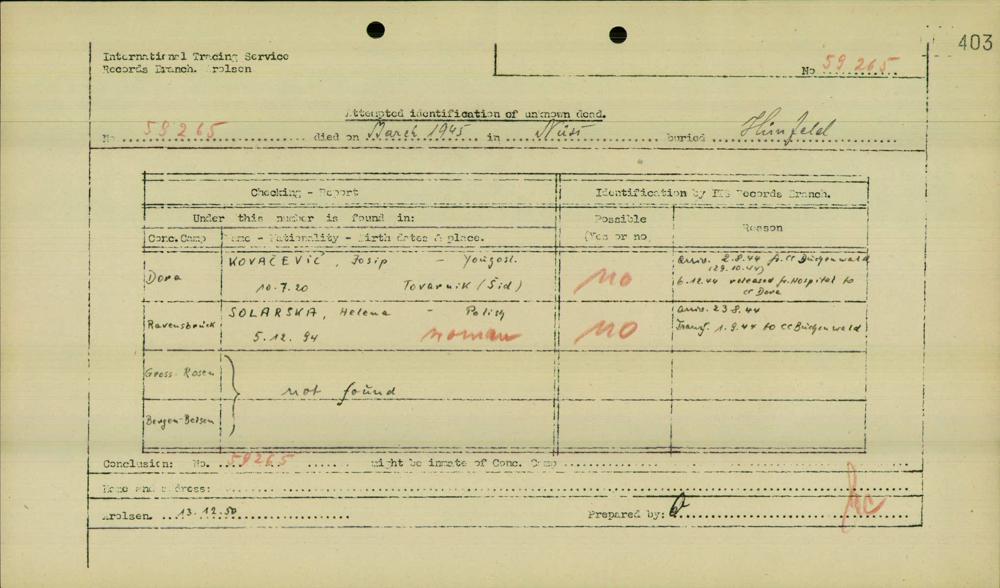 403
International Tracing Service
Records Branch. Arolsen
No 59 265
Attempted identification of unknown dead.
No 59265 died on March 1945 in Nüst buried Hünfeld
Checking - Report Identification by ITS Records Branch.
Under this number is found in: Possible (Yes or no) Reason
Conc.Camp Name - Nationality - Birth dates & place.
Dora KOVAČEVIĆ, Josip - Yougosl. no arriv. 2.8.44 fr. CC Buchenwald
(29.10.44)
10.7.20 Tovarnik (Šid) 6.12.44 released fr. Hospital to
CC Dora
Ravensbrück SOLARSKA, Helena - Polish no arriv. 23.8.44
5.12.94 woman Transf. 1.9.44 to CC Buchenwald
Gross-Rosen
not found
Bergen-Belsen
Conclusion: No. 59265 might be inmate of Conc. Camp
Home and address:
Arolsen. 13.12.50 Prepared by: